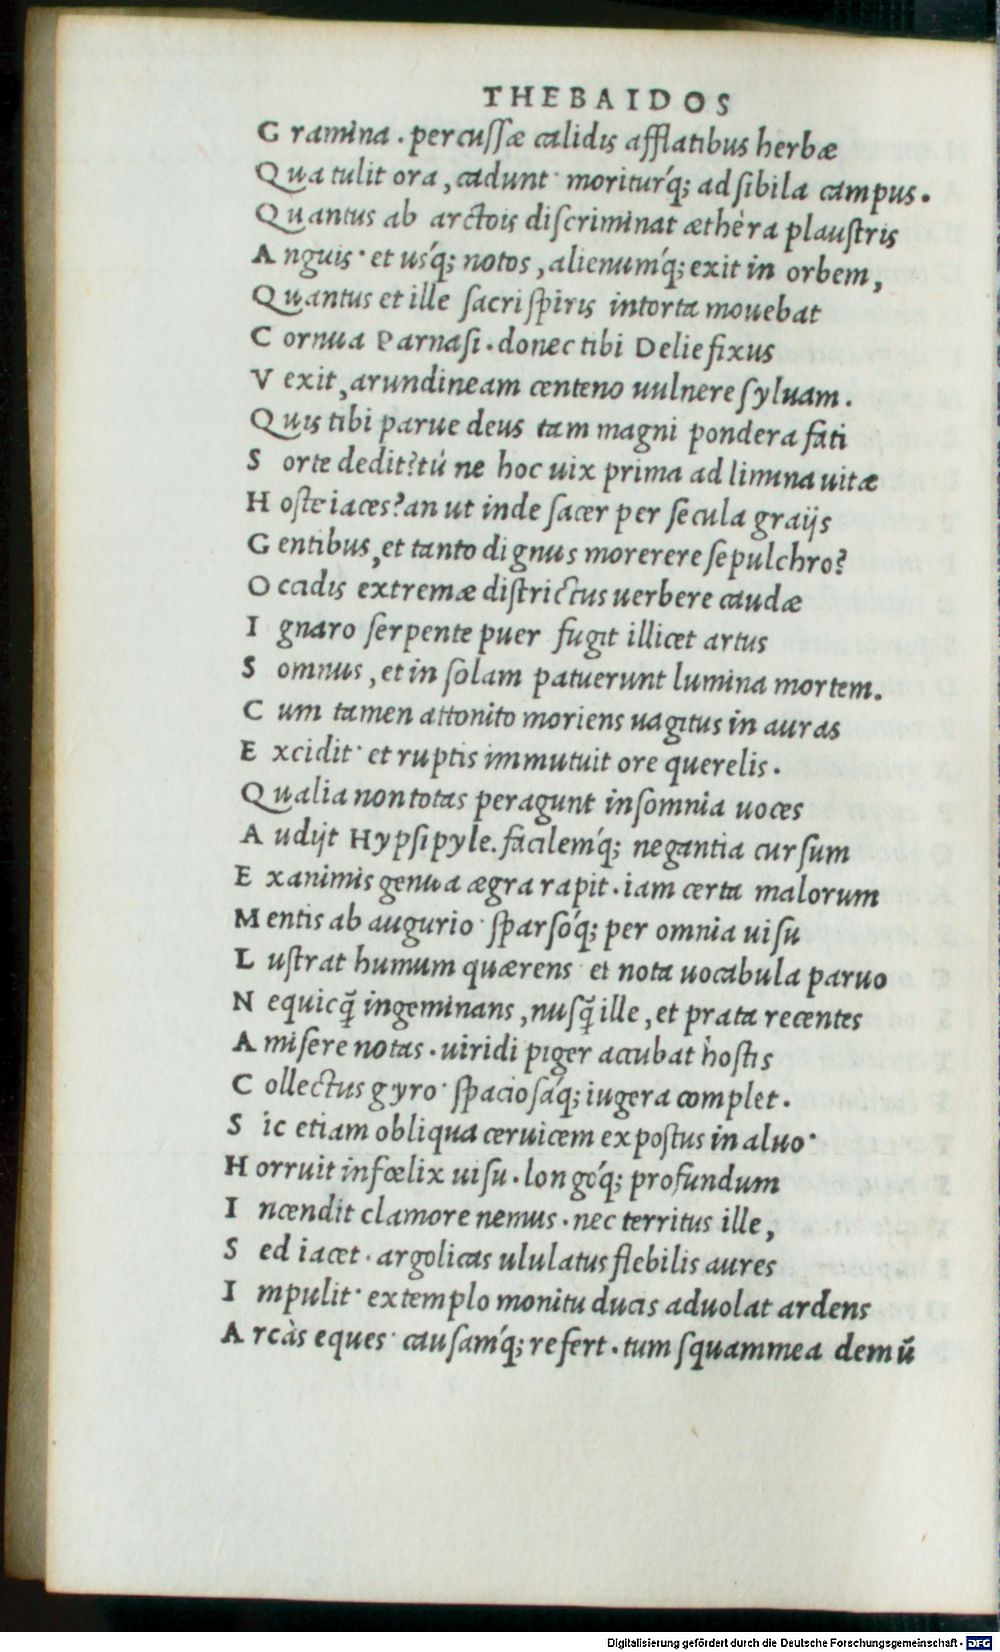 THEBAIDOS
G ramina . percussæ calidis afflatibus herbæ
Qua tulit ora, cadunt· moriturq́; ad sibila campus.
Quantus ab arctois discriminat æthèra plaustris
A nguis· et usq́; notos, alienumq́; exit in orbem,
Quantus et ille sacri spiris intorta mouebat
C ornua Parnasi. donec tibi Delie fixus
V exit, arundineam centeno uulnere syluam.
Quis tibi parue deus tam magni pondera fati
S orte dedit? tú ne hoc uix prima ad limina uitæ
H oste iaces? an ut inde sacer per secula graijs
G entibus, et tanto dignus morerere sepulchro?
O ccidis extremæ districtus uerbere caudæ
I gnaro serpente puer fugit illicet artus
S omnus, et in solam patuerunt lumina mortem.
C um tamen attonito moriens uagitus in auras
E xcidit· et ruptis immutuit ore querelis.
Qualia non totas peragunt insomnia uoces
A udijt Hypsipyle. facilemq́; negantia cursum
E xanimis genua ægra rapit. iam certa malorum
M entis ab augurio· sparsoq́; per omnia uisu
L ustrat humum quærens et nota uocabula paruo
N equicq̃ ingeminans, nusq̃ ille, et prata recentes
A misere notas. uiridi piger accubat hostis
C ollectus gyro· spaciosaq́; iugera complet.
S ic etiam obliqua ceruicem expostus in aluo·
H orruit infœlix uisu. longeq́; profundum
I ncendit clamore nemus. nec territus ille,
S ed iacet. argolicas ululatus flebilis aures
I mpulit· extemplo monitu ducis aduolat ardens
A rcàs eques· causamq́; refert. tum squammea demū
Digitalisierung gefördert durch die Deutsche Forschungsgemeinschaft - DFG